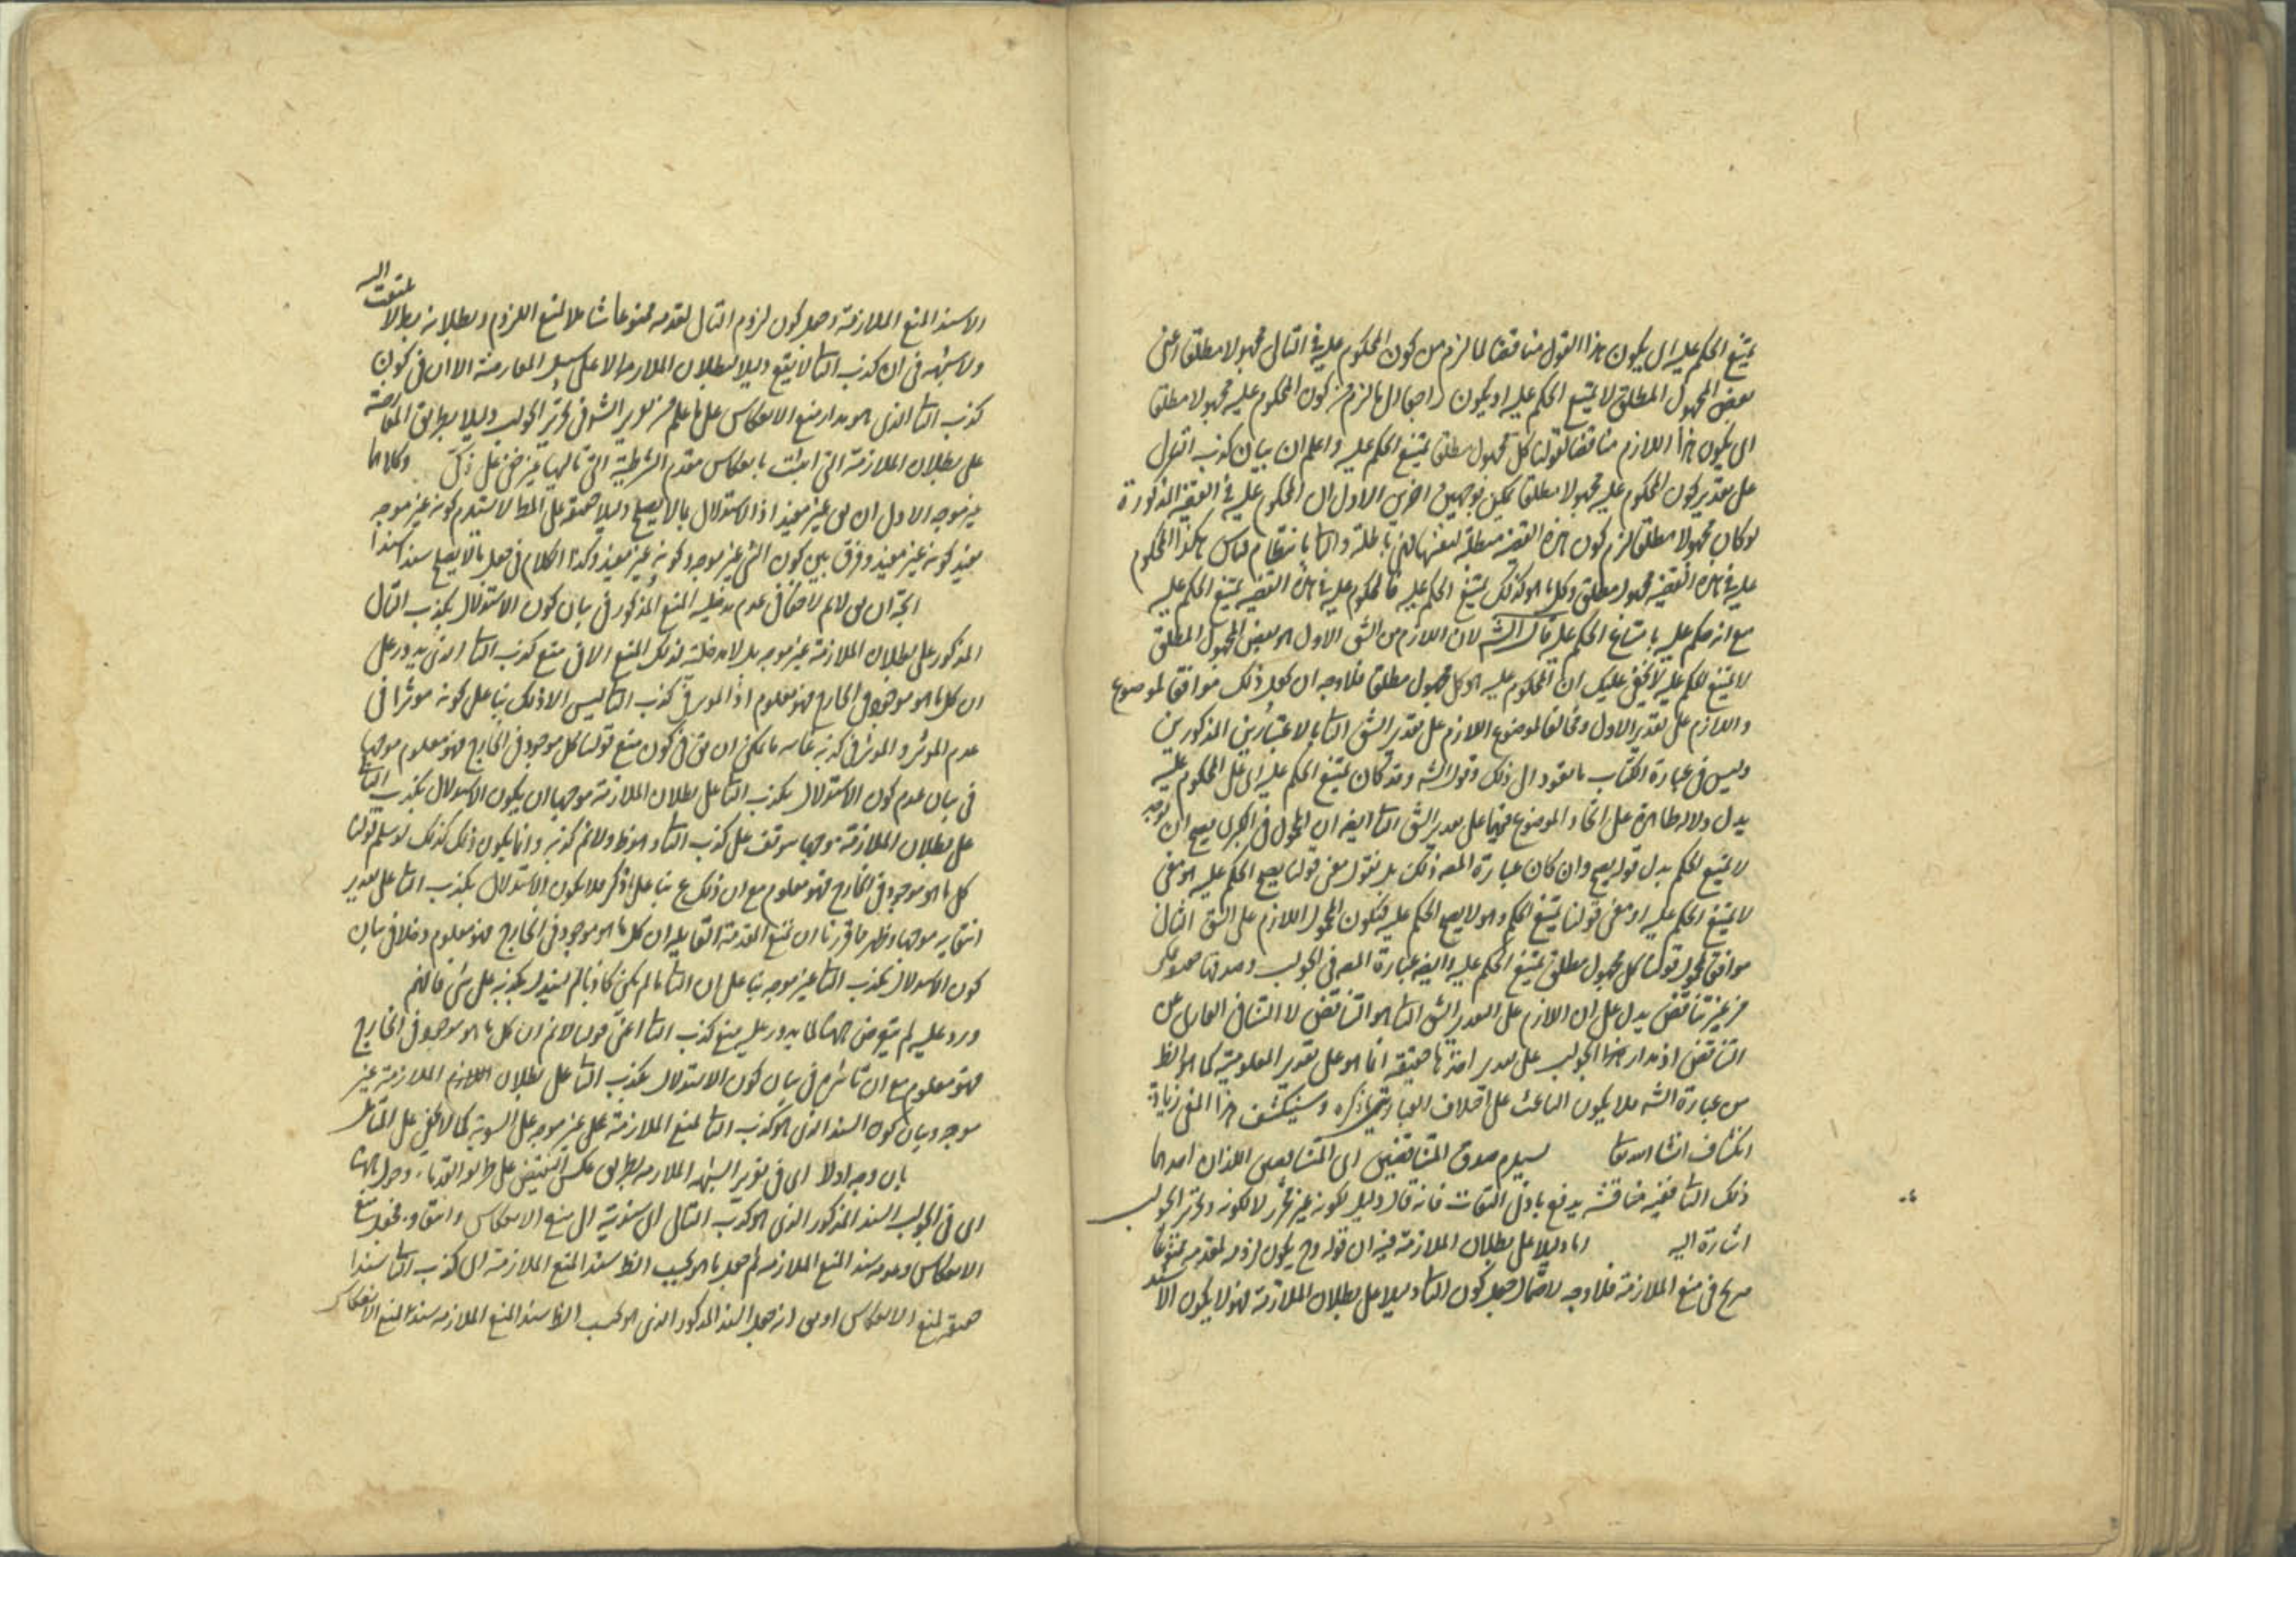 يمتنع الحكم عليه اى يكون هذا القول مناقضا لما لزم من كون المحكوم عليه فى التالى مجهولا مطلقا اعنى
بعض المجهول المطلق لا يمتنع الحكم عليه او يكون راجعا الى ما لزم من كون المحكوم عليه مجهولا مطلقا
اى يكون هذا اللازم مناقضا لقولنا كل مجهول مطلق يمتنع الحكم عليه واعلم ان بيان كذب
على تقدير كون المحكوم عليه مجهولا مطلقا يمكن بوجهين اخرين الاول ان المحكوم عليه فى القضية المذكورة
لو كان مجهولا مطلقا لزم كون هذه القضية مبطلة لنفسها فهى باطلة والثا بانتظام قياس هكذا المحكوم
عليه فى هذه القضية مجهول مطلق وكل ما هو كذلك يمتنع الحكم عليه فالمحكوم عليه فى هذه القضية يمتنع الحكم عليه
مع انه حكم عليه بامتناع الحكم عليه قال الشه لان اللازم من الشق الاول هو بعض المجهول المطلق
لا يمتنع الحكم عليه لا يخفى عليك ان المحكوم عليه هو كل مجهول مطلق فلا وجه ان يجعل ذلك موافقا لموضوع
واللازم على تقدير الاول ومخالفا لموضوع اللازم على تقدير الشق الثا بالاعتبارين المذكورين
وليس فى عبارة الكتاب ما يقود الى ذلك وقول الشه وقد كان يمتنع الحكم عليه اى على المحكوم عليه
يدل دلالة ظاهرة على اتحاد الموضوع فيهما على تقدير الشق الثا ايضا ان المحمول فى الكبرى يصح ان
لا يمتنع الحكم بدل قوله يصح وان كان عبارة المصه ذلك بل نقول معنى قولنا يصح الحكم عليه هو معنى
لا يمتنع الحكم عليه او معنى قولنا يمتنع الحكم هو لا يصح الحكم عليه فيكون المحمول اللازم على الشق الثانى
موافق لمحمول قولنا كل مجهول مطلق يمتنع الحكم عليه وايضا عبارة المصه فى الجواب وصدقها
من غير تناقض يدل على ان اللازم على تقدير الشق الثا هو التناقض لا التنافى
التناقض اذ مدار هذا الجواب على تقدير حقيقة انما هو على تقدير المعلومية كما هو الظ
من عبارة الشه فلا يكون الباعث على اختلاف العبارتين ما ذكره وسينكشف هذا المعنى زيادة
انكشاف انشا الله تعا يستلزم صدق المتناقضين اى المتنافيين اللذان احدهما
ذلك الثا ففيه مناقشة يدفع بادنى التفات فانه قال دليل لكونه غير محرر لا لكونه دلتحرير الجواب
اشارة اليه اما دليلا على بطلان الملازمة فيه ان قوله وح يكون لزومه لمقدمه ممنوعا
صريح فى منع الملازمة فلا وجه لاحتمال جعل كون الثا دليلا على بطلان الملازمة فهو لا يكون الا سند
والاسند المنع الملازمة وجعل كون لزوم التالى لمقدمه ممنوعا شاملا لمنع اللزوم وبطلانه مما لا يلتفت اليه
ولا شبهة فى ان كذب الثا لا يقع دليلا لبطلان الملازمة الا على سبيل المعارضة الا ان فى كون
كذب الثا الذى هو مدار منع الانعكاس على ما علم من تقرير الشه فى تحرير الجواب دليلا بطريق المعارضة
على بطلان الملازمة التى اثبتت بانعكاس مقدم الشرطية التى تاليها غير خفى على ذلك وكلاهما
غير موجه الاول ان يق غير مفيد اذ الاستدلال بما لا يصلح دليلا حقيقة على المط لا يستلزم كونه غير موجه
مفيد كونه غير مفيد وفرق بين كون الشى غير موجه وكونه غير مفيد وكذا الكلام فى جعل ما لا يصلح سندا سندا
الثانى ان يق لا نم لا خفا فى عدم مدخلية المنع المذكور فى بيان كون الاستدلال بكذب التالى
المذكور على بطلان الملازمة غير موجه بل لا مدخلية لذلك المنع الا فى منع كذب الثا الذى يدور على
ان كل ما هو موجود فى الخارج فهو معلوم اذ المؤثر فى كذب الثا ليس الا ذلك بنا على كونه مؤثرا فى
عدم المؤثر والمؤثر فى كونه غايته ما يمكن ان يق فى كون منع قولنا كل موجود فى الخارج فهو معلوم موجها
فى بيان عدم كون الاستدلال بكذب الثا على بطلان الملازمة موجها ان يكون الاستدلال بكذب الثا
على بطلان الملازمة موجها موقوف على كذب الثا وهو ظ ولا نم كذبه وانما يكون ذلك كذلك لو سلم قولنا
كل ما هو موجود فى الخارج فهو معلوم مع ان ذلك مم بنا على ما ذكر فلا يكون الاستدلال بكذب الثا على تقدير
انتفايه موجها وظهر مما قررنا ان منع المقدمة القايلة ان كل ما هو موجود فى الخارج فهو معلوم دخلا فى بيان
كون الاستدلال بكذب الثا غير موجه بنا على ان الثا ما لم يكن كاذبا لم يستدل بكذبه على شى فافهم
ورد عليه لم يتعرض ههنا لما يدور عليه منع كذب الثا اعنى قولنا لا نم ان كل ما هو موجود فى الخارج
فهو معلوم مع ان تاثيره فى بيان كون الاستدلال بكذب الثا على بطلان الملازمة غير
موجه وبيان كون السند الذى هو كذب الثا لمنع الملازمة على غير موجه على السوية كما لا يخفى على المتامل
بان وجه اولا اى فى تقرير الشبهة الملازمة بطريق عكس النقيض على طريق القدماء وحول ههنا
اى فى الجواب السند المذكور الذى هو كذب التالى الى سندية الى منع الانعكاس وانتقاد فجعل منع
الانعكاس وعدمه سند المنع الملازمة ثم جعل ما هو بحسب الظ سند المنع الملازمة اى كذب الثا سندا
حقيقة لمنع الانعكاس او يق انه جعل السند المذكور الذى هو بحسب الظ سند المنع الملازمة سند المنع الانعكاس